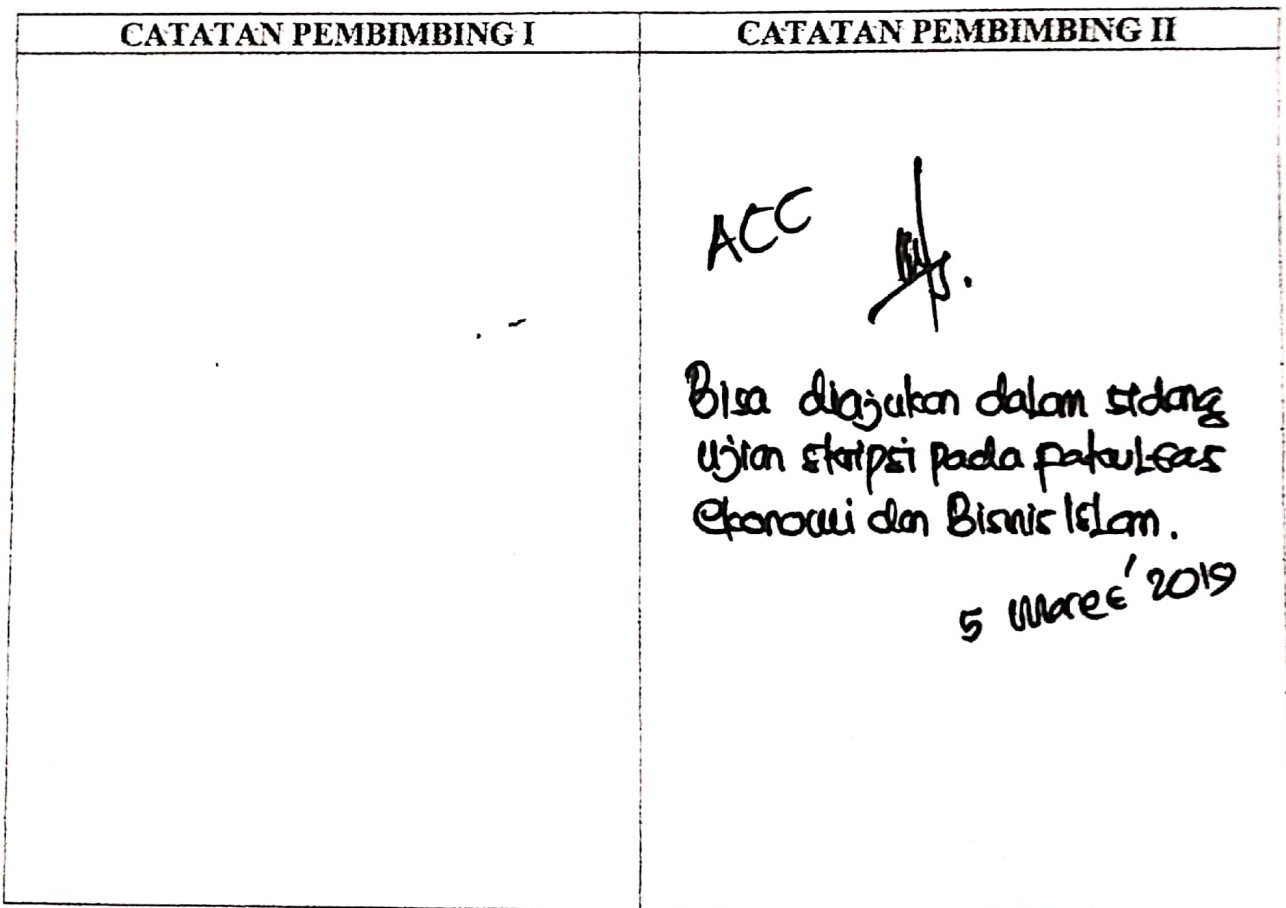 CATATAN PEMBIMBING I
CATATAN PEMBIMBING II
ACC
Bisa diajukan dalam sidang
ujian skripsi pada Fakultas
Ekonomi dan Bisnis Islam.
5 Maret' 2019